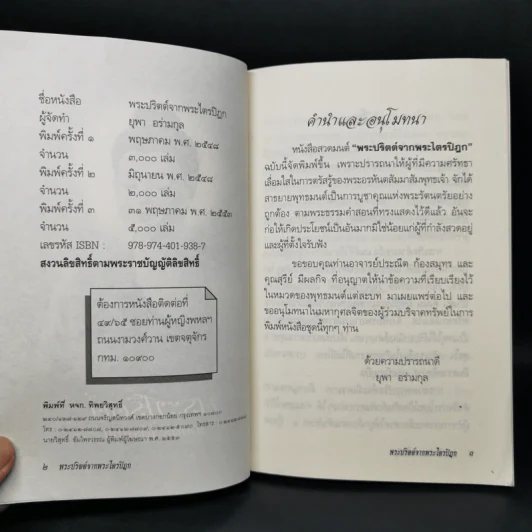 ชื่อหนังสือ พระปริตต์จากพระไตรปิฎก
ผู้จัดทำ ยุพา อร่ามกุล
พิมพ์ครั้งที่ ๑ พฤษภาคม พ.ศ. ๒๕๔๘
จำนวน ๓,๐๐๐ เล่ม
พิมพ์ครั้งที่ ๒ มิถุนายน พ.ศ. ๒๕๔๘
จำนวน ๒,๐๐๐ เล่ม
พิมพ์ครั้งที่ ๓ ๓๑ พฤษภาคม พ.ศ. ๒๕๕๓
จำนวน ๕,๐๐๐ เล่ม
เลขรหัส ISBN : 978-974-401-938-7
สงวนลิขสิทธิ์ตามพระราชบัญญัติลิขสิทธิ์
ต้องการหนังสือติดต่อที่
๔๙/๖๕ ซอยท่านผู้หญิงพหลฯ
ถนนงามวงศ์วาน เขตจตุจักร
กทม. ๑๐๙๐๐
พิมพ์ที่ หจก. ทิพยวิสุทธิ์
ถนนจรัญสนิทวงศ์ เขตบางกอกน้อย กรุงเทพฯ
โทร.
นายวิสุทธิ์ ผู้พิมพ์ผู้โฆษณา พ.ศ. ๒๕๕๓
๒ พระปริตต์จากพระไตรปิฎก
คำนำและอนุโมทนา
หนังสือสวดมนต์ "พระปริตต์จากพระไตรปิฎก"
ฉบับนี้จัดพิมพ์ขึ้น เพราะปรารถนาให้ผู้ที่มีความศรัทธา
เลื่อมใสในการตรัสรู้ของพระอรหันตสัมมาสัมพุทธเจ้า จักได้
สาธยายพุทธมนต์เป็นการบูชาคุณแห่งพระรัตนตรัยอย่าง
ถูกต้อง ตามพระธรรมคำสอนที่ทรงแสดงไว้ดีแล้ว อันจะ
ก่อให้เกิดประโยชน์เป็นอันมากมิใช่น้อยแก่ผู้ที่กำลังสวดอยู่
และผู้ที่ตั้งใจรับฟัง
ขอขอบคุณท่านอาจารย์ประณีต ก้องสมุทร และ
คุณสุรีย์ มีผลกิจ ที่อนุญาตให้นำข้อความที่เรียบเรียงไว้
ในหมวดของพุทธมนต์แต่ละบท มาเผยแพร่ต่อไป และ
ขออนุโมทนาในมหากุศลจิตของผู้ร่วมบริจาคทรัพย์ในการ
พิมพ์หนังสือชุดนี้ทุกๆ ท่าน
ด้วยความปรารถนาดี
ยุพา อร่ามกุล
พระปริตต์จากพระไตรปิฎก ๓